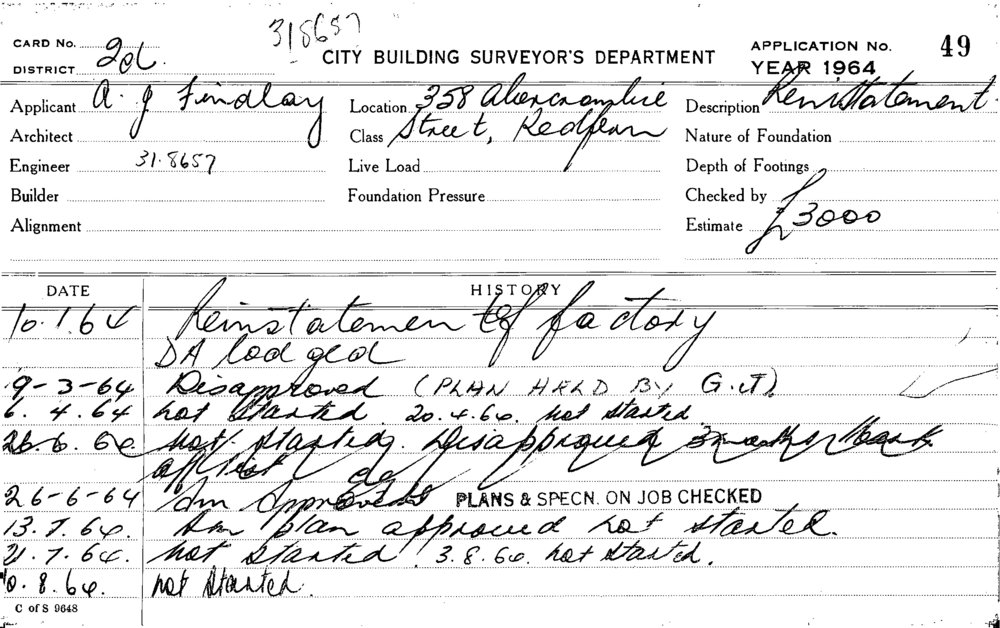 318657
CARD No. 2d
DISTRICT
CITY BUILDING SURVEYOR'S DEPARTMENT
APPLICATION No. 49
YEAR 1964
Applicant A. J Findlay
Location 358 Abercrombie
Description Reinstatement.
Architect
Class Street, Redfern
Nature of Foundation
Engineer 31.8657
Live Load
Depth of Footings
Builder
Foundation Pressure
Checked by
Alignment
Estimate £3000
DATE HISTORY
10.1.64 Reinstatement of factory
DA lodged
9-3-64 Disapproved (PLAN HELD BY G.J).
6.4.64 not started 20.4.64. not started
26.6.64 not started. Disapproved 3 months back
26-6-64 Am Approved PLANS & SPECN. ON JOB CHECKED
13.7.64. Am plan approved not started.
21.7.64. not started 3.8.64. not started.
10.8.64. not started.
C of S 9648